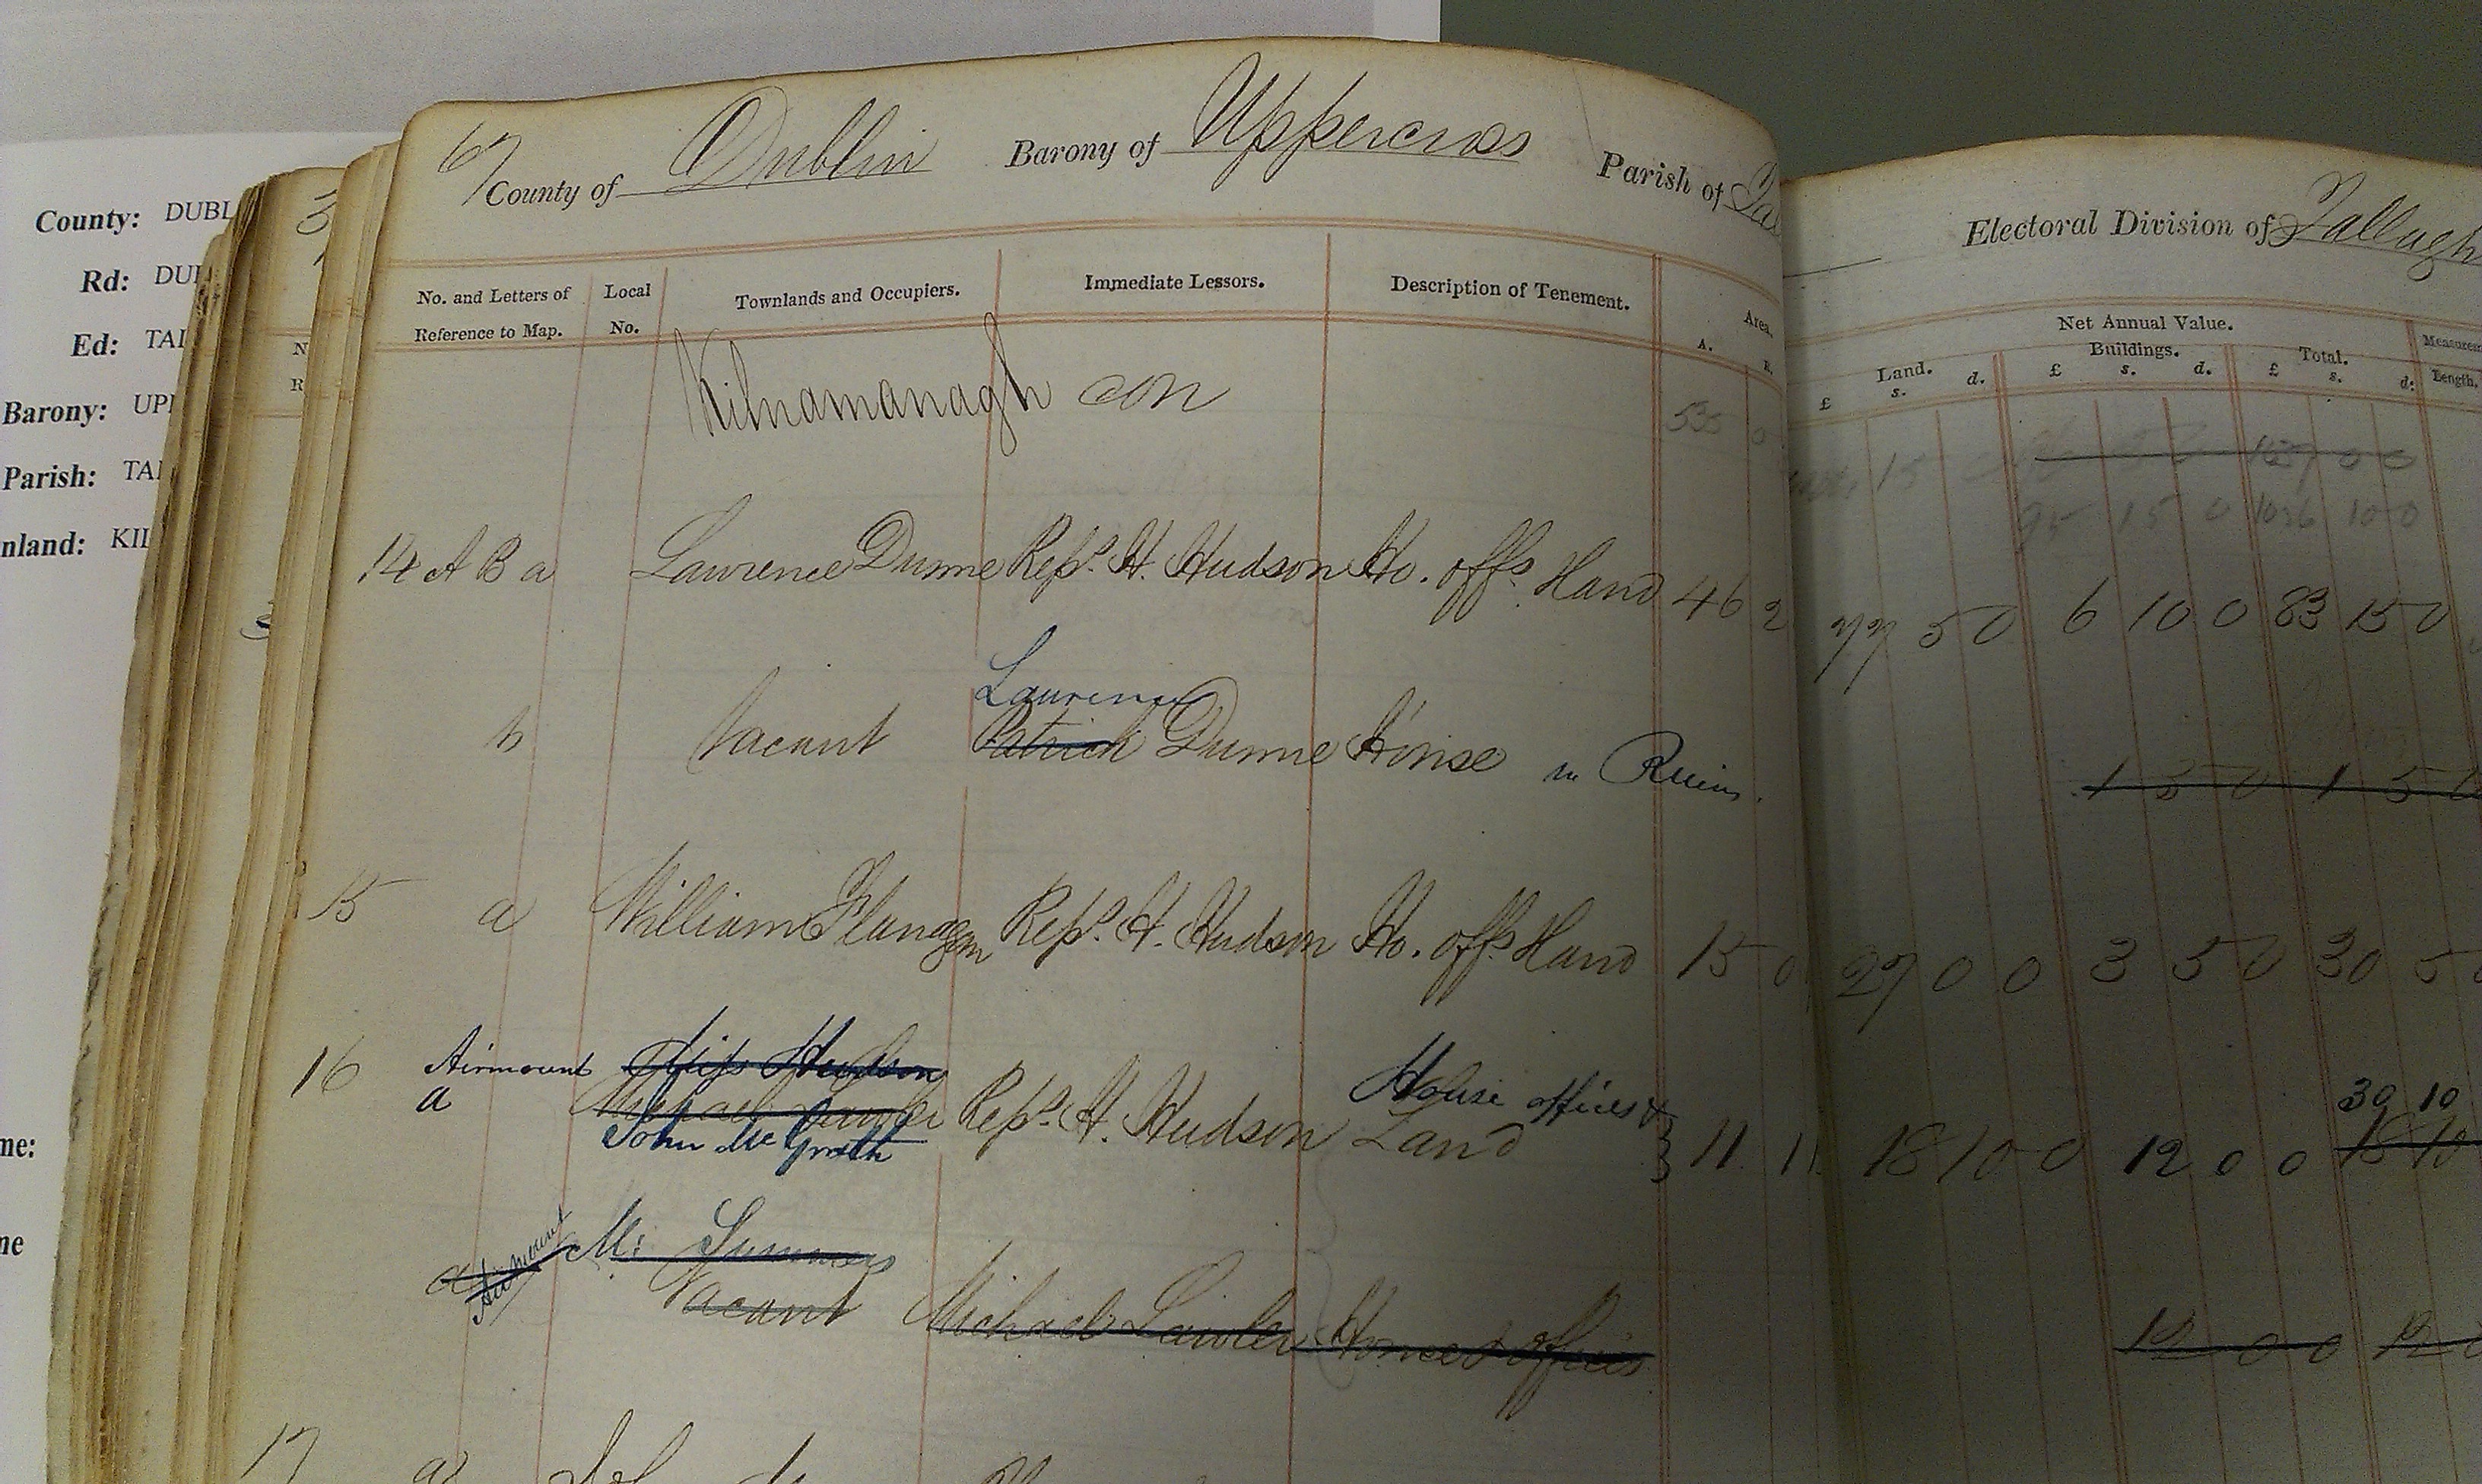 County: DUBL
Rd: DU
Ed: TAL
Barony: UPP
Parish: TAL
nland: KIL
me:
ne
67
County of Dublin Barony of Uppercross Parish of Tal
Electoral Division of Tallagh
No. and Letters of Reference to Map. Local No. Townlands and Occupiers. Immediate Lessors. Description of Tenement. Area. A. R.
Net Annual Value. Measurem
Land. Buildings. Total. Length.
£ s. d. £ s. d. £ s. d.
Kilnamanagh con 535 0
15 1037 0 0
95 15 0 1036 10 0
14 A B a Lawrence Dunne Reps. H. Hudson Ho. offs. Land 46 2 77 5 0 6 10 0 83 15 0
Laurence
b Vacant Patrick Dunne House in Ruins. 1 5 0 1 5 0
15 a William Flanagan Reps. H. Hudson Ho. offs. Land 15 0 27 0 0 3 5 0 30 5
Airmount Miss Hudson House offices & 30 10
16 a Michael Lawler Reps. H. Hudson Land 11 1 18 10 0 12 0 0 18 10
John McGrath
a Airmount M: Summers
Vacant Michael Lawler House & offices 12 0 0 12
17 a